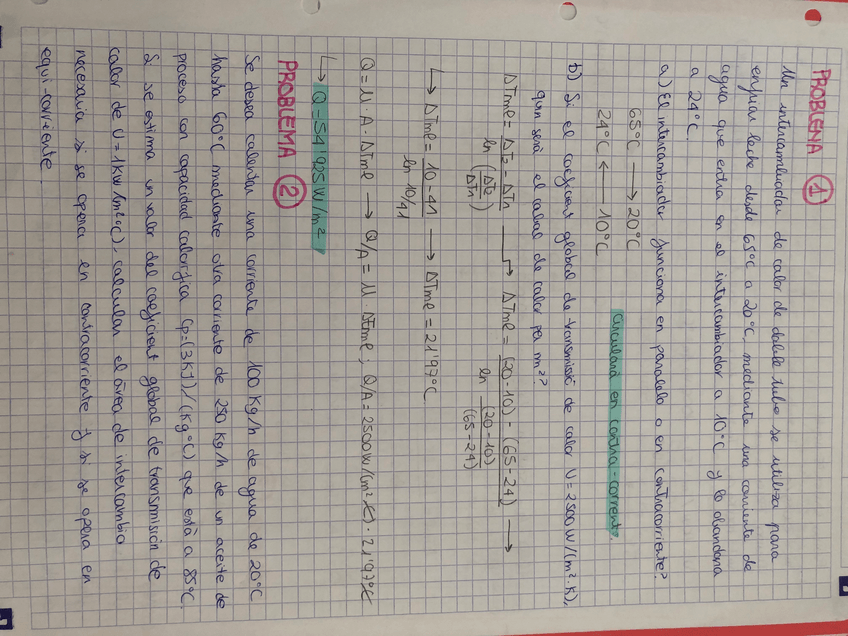 PROBLEMA 1
Un intercambiador de calor de doble tubo se utiliza para
enfriar leche desde 65°C a 20°C, mediante una corriente de
agua que entra en el intercambiador a 10°C y lo abandona
a 24°C.
a) El intercambiador funciona en paralelo o en contracorriente?
65°C → 20°C
24°C ← 10°C
Circulará en contra-corrent.
b) Si el coeficient global de transmissió de calor U=2500 W/(m²·K),
quin serà el cabal de calor per m²?
ΔTml = ΔT2 - ΔT1 / ln (ΔT2/ΔT1) → ΔTml = (20-10) - (65-24) / ln (20-10)/(65-24) →
↳ ΔTml = 10-41 / ln 10/41 → ΔTml = 21'97°C.
Q = U · A · ΔTml → Q/A = U · ΔTml ; Q/A = 2500 W/(m²·K) · 21'97°C
↳ Q = 54'925 W/m²
PROBLEMA 2
Se desea calentar una corriente de 100 Kg/h de agua de 20°C
hasta 60°C mediante otra corriente de 250 Kg/h de un aceite de
proceso con capacidad calorífica Cp=(3KJ)/(Kg°C) que està a 85°C.
Si se estima un valor del coeficient global de transmisión de
calor de U=1KW/(m²°C), calcular el área de intercambio
necesaria si se opera en contracorriente y si se opera en
equi-corriente.